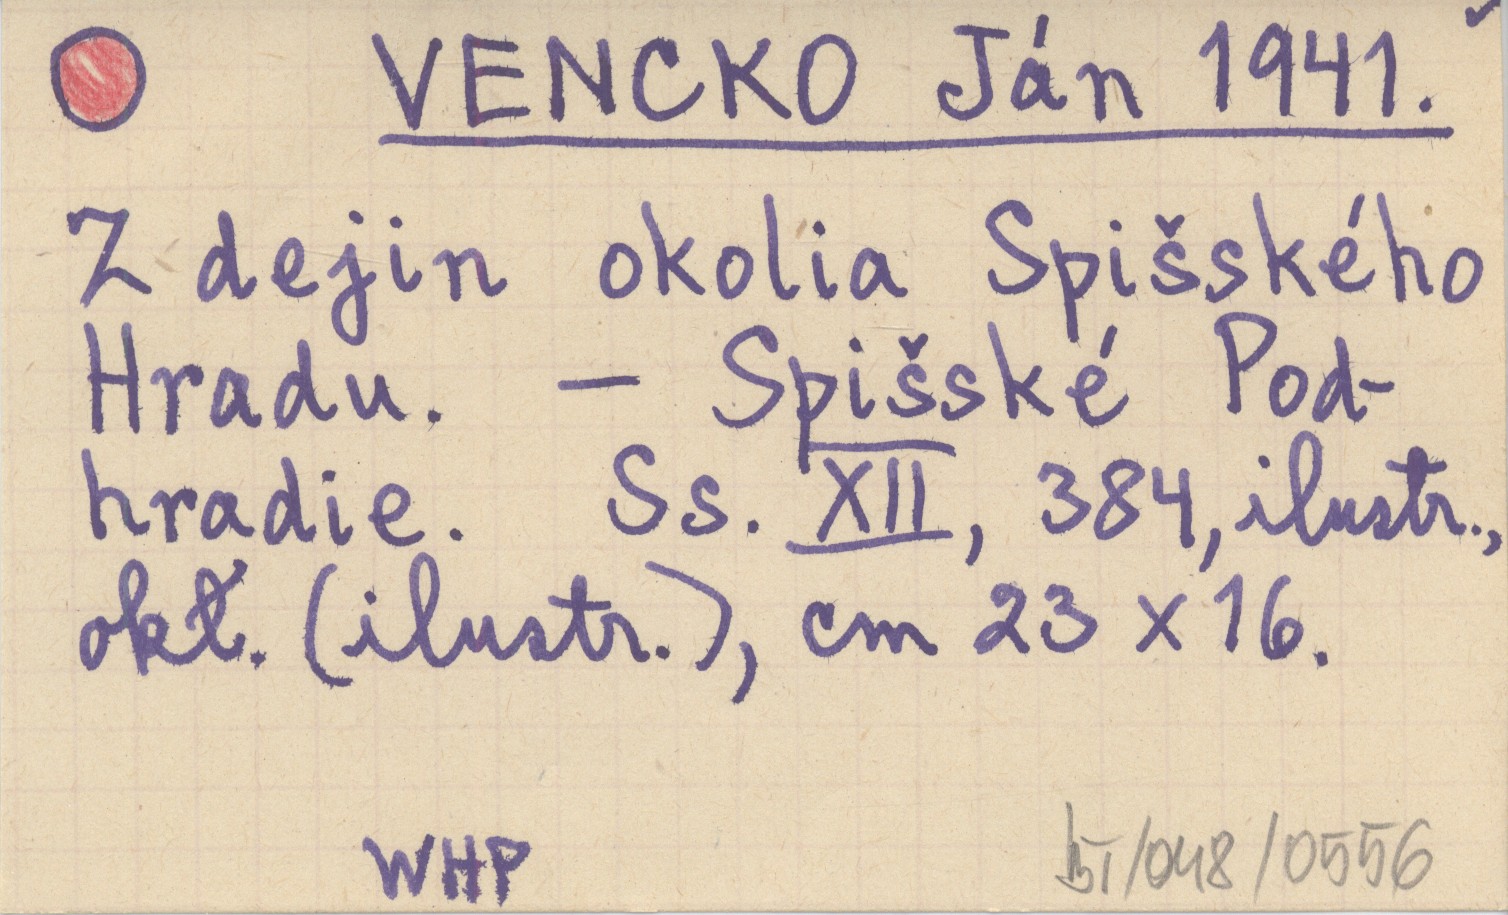 VENCKO Ján 1941.
Z dejin okolia Spišského
Hradu. — Spišské Pod-
hradie. Ss. XII, 384, ilustr.,
okł. (ilustr.), cm 23 x 16.
WHP /048/0556